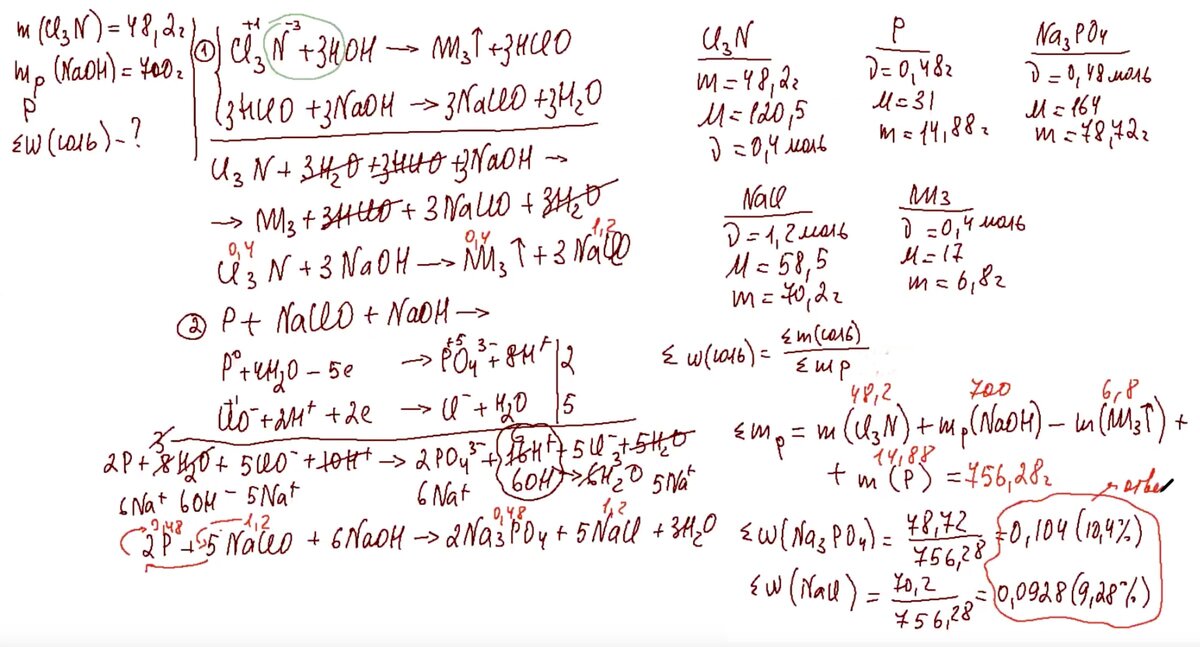 m(Cl₃N)=48,2г
mр(NaOH)=700г
P
Σω(соль)-?
① Cl₃⁺¹N⁻³+3HOH → NH₃↑+3HClO
3HClO+3NaOH → 3NaClO+3H₂O
Cl₃N+3H₂O+3HClO+3NaOH →
→ NH₃+3HClO+3NaClO+3H₂O
0,4 0,4 1,2
Cl₃N+3NaOH → NH₃↑+3NaClO
② P+NaClO+NaOH →
P⁰+4H₂O-5e → P⁺⁵O₄³⁻+8H⁺ | 2
ClO⁻+2H⁺+2e → Cl⁻+H₂O | 5
3
2P+8H₂O+5ClO⁻+10H⁺ → 2PO₄³⁻+16H⁺+5Cl⁻+5H₂O
6Na⁺ 6OH⁻ 5Na⁺ 6Na⁺ 6OH → 6H₂O 5Na⁺
0,48 1,2 0,48 1,2
2P+5NaClO+6NaOH → 2Na₃PO₄+5NaCl+3H₂O
Cl₃N
m=48,2г
M=120,5
ν=0,4моль
P
ν=0,48г
M=31
m=14,88г
Na₃PO₄
ν=0,48моль
M=164
m=78,72г
NaCl
ν=1,2моль
M=58,5
m=70,2г
NH₃
ν=0,4моль
M=17
m=6,8г
Σω(соль)=Σm(соль)/Σmр
48,2 700 6,8
Σmр=m(Cl₃N)+mр(NaOH)-m(NH₃↑)+
14,88
+m(P)=756,28г
ответ
Σω(Na₃PO₄)=78,72/756,28=0,104(10,4%)
Σω(NaCl)=70,2/756,28=0,0928(9,28%)